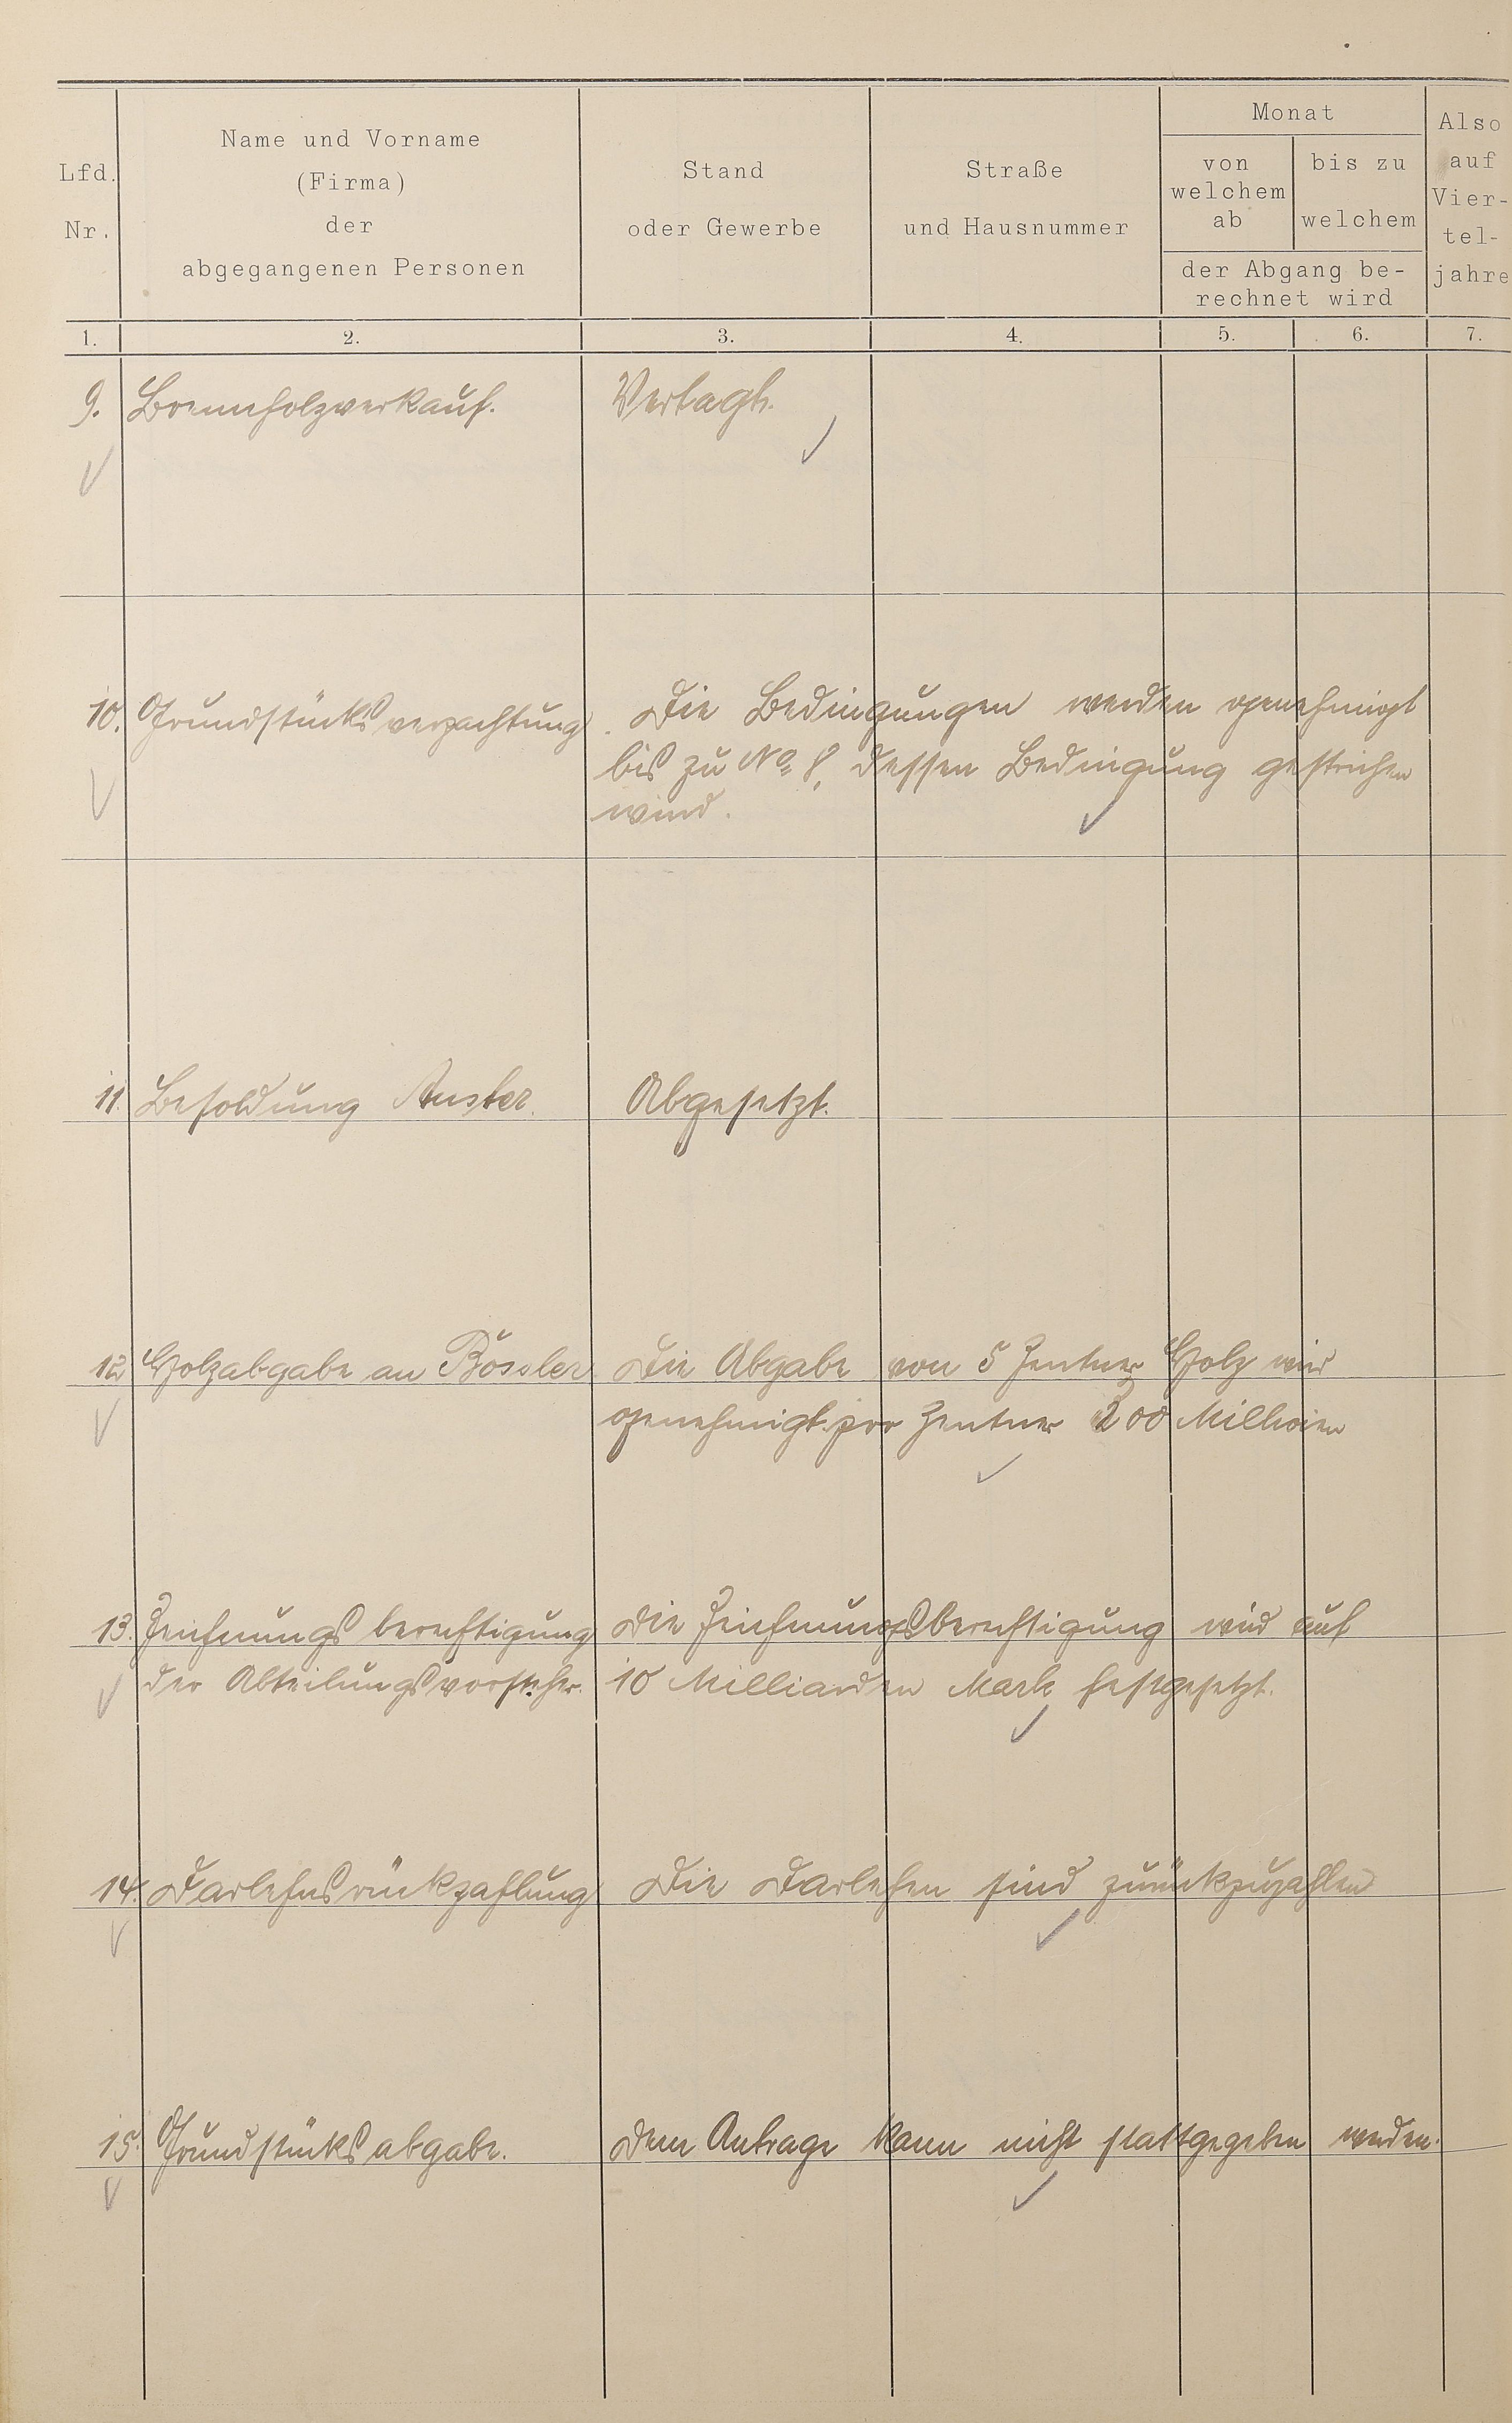 Lfd. Nr.
Name und Vorname
(Firma)
der
abgegangenen Personen
Stand
oder Gewerbe
Straße
und Hausnummer
Monat
von welchem ab
bis zu welchem
der Abgang be-
rechnet wird
Also
auf
Vier-
tel-
jahre
1. 2. 3. 4. 5. 6. 7.
9. Brennholzverkauf. Vertagt.
10. Grundstücksverpachtung. Die Bedingungen werden genehmigt
bis zu No. 8, dessen Bedingung gestrichen
wird.
11. Besoldung Auster. Abgesetzt.
12 Holzabgabe an Bössler Die Abgabe von 5 Zentner Holz wird
genehmigt. pro Zentner 200 Millionen
13. Zeichnungsberechtigung Die Zeichnungsberechtigung wird auf
der Abteilungsvorsteher. 10 Milliarden Mark festgesetzt.
14. Darlehnsrückzahlung Die Darlehen sind zurückzuzahlen
15. Grundstücksabgabe. Dem Antrage kann nicht stattgegeben werden.